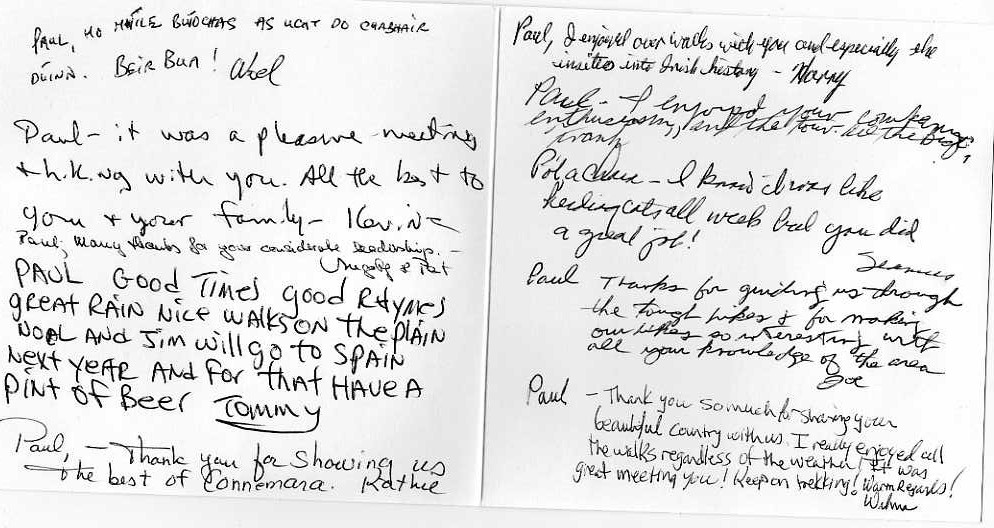 PAUL, MO MHÍLE BUÍOCHAS AS UCHT DO CHABHAIR
DÚINN. BEIR BUA!
Paul - it was a pleasure meeting
& hiking with you. All the best to
you & your family - Kevin
Paul, Many thanks for your considerate leadership. -
& Pat
PAUL GOOD TIMES GOOD RHYMES
GREAT RAIN NICE WALKS ON the PLAIN
NOEL AND JIM will go to SPAIN
NEXT YEAR AND FOR THAT HAVE A
PINT OF BEER Tommy
Paul, - Thank you for showing us
the best of Connemara. Kathie
Paul, I enjoyed our walks with you and especially the
insites into Irish history - Harry
Paul - I enjoyed your company,
enthusiasm, and the tour
Frank
- I know it was like
herding cats all week but you did
a great job!
Seamus
Paul Thanks for guiding us through
the tough hikes & for making
our hikes so interesting with
all your knowledge of the area
Joe
Paul - Thank you so much for sharing your
beautiful country with us. I really enjoyed all
the walks regardless of the weather! It was
great meeting you! Keep on trekking! Warm Regards!
Wilma